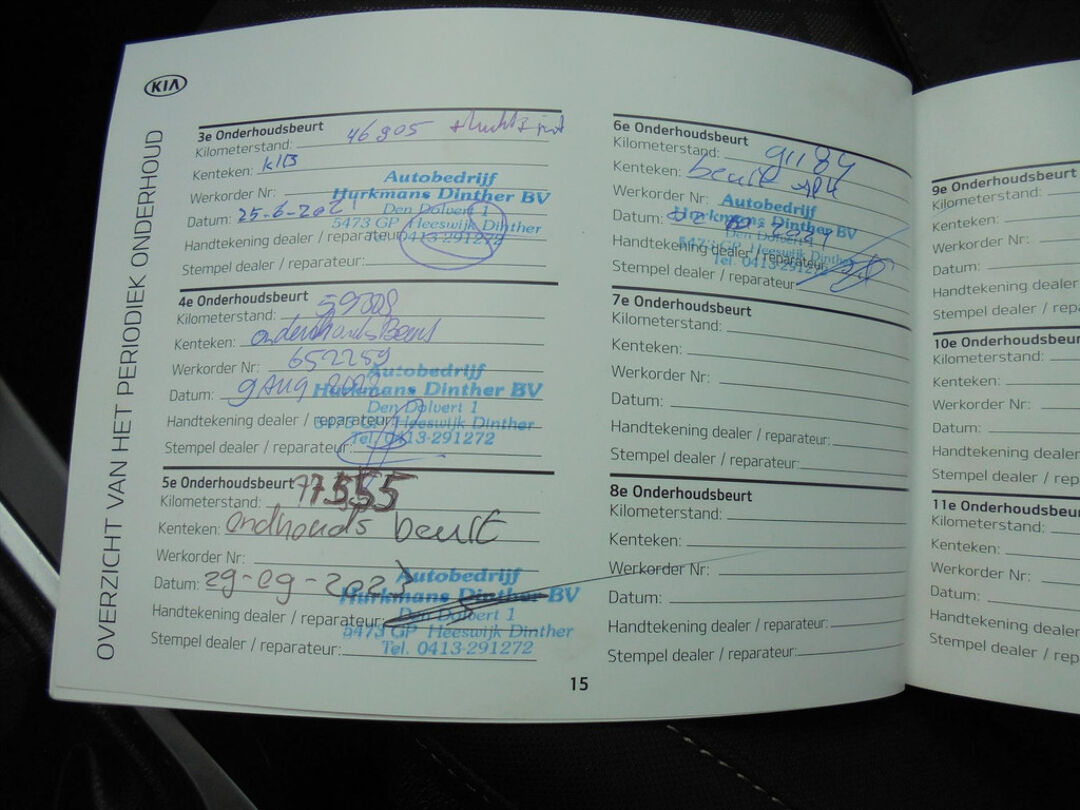 KIA
OVERZICHT VAN HET PERIODIEK ONDERHOUD
3e Onderhoudsbeurt
Kilometerstand: 46905
Kenteken: KLB
Werkorder Nr:
Datum: 25-6-202
Handtekening dealer / reparateur:
Stempel dealer / reparateur:
Autobedrijf
Hurkmans Dinther BV
Den Dolvert 1
5473 GP Heeswijk Dinther
0413-291272
4e Onderhoudsbeurt
Kilometerstand: 59308
Kenteken: onderhoudsBeurt
Werkorder Nr: 652289
Datum: 9 AUG 2022
Handtekening dealer / reparateur:
Stempel dealer / reparateur:
Autobedrijf
Hurkmans Dinther BV
Den Dolvert 1
5473 GP Heeswijk Dinther
Tel. 0413-291272
5e Onderhoudsbeurt
Kilometerstand: 77555
Kenteken: ondhouds beurt
Werkorder Nr:
Datum: 29-09-2023
Handtekening dealer / reparateur:
Stempel dealer / reparateur:
Autobedrijf
Hurkmans Dinther BV
Den Dolvert 1
5473 GP Heeswijk Dinther
Tel. 0413-291272
6e Onderhoudsbeurt
Kilometerstand: 91184
Kenteken: beurt
Werkorder Nr:
Datum:
Handtekening dealer / reparateur:
Stempel dealer / reparateur:
Autobedrijf
Hurkmans Dinther BV
Den Dolvert 1
5473 GP Heeswijk Dinther
Tel. 0413-291272
7e Onderhoudsbeurt
Kilometerstand:
Kenteken:
Werkorder Nr:
Datum:
Handtekening dealer / reparateur:
Stempel dealer / reparateur:
8e Onderhoudsbeurt
Kilometerstand:
Kenteken:
Werkorder Nr:
Datum:
Handtekening dealer / reparateur:
Stempel dealer / reparateur:
15
9e Onderhoudsbeurt
Kilometerstand:
Kenteken:
Werkorder Nr:
Datum:
Handtekening dealer
Stempel dealer / rep
10e Onderhoudsbeur
Kilometerstand:
Kenteken:
Werkorder Nr:
Datum:
Handtekening dealer
Stempel dealer / rep
11e Onderhoudsbeu
Kilometerstand:
Kenteken:
Werkorder Nr:
Datum:
Handtekening dealer
Stempel dealer / rep